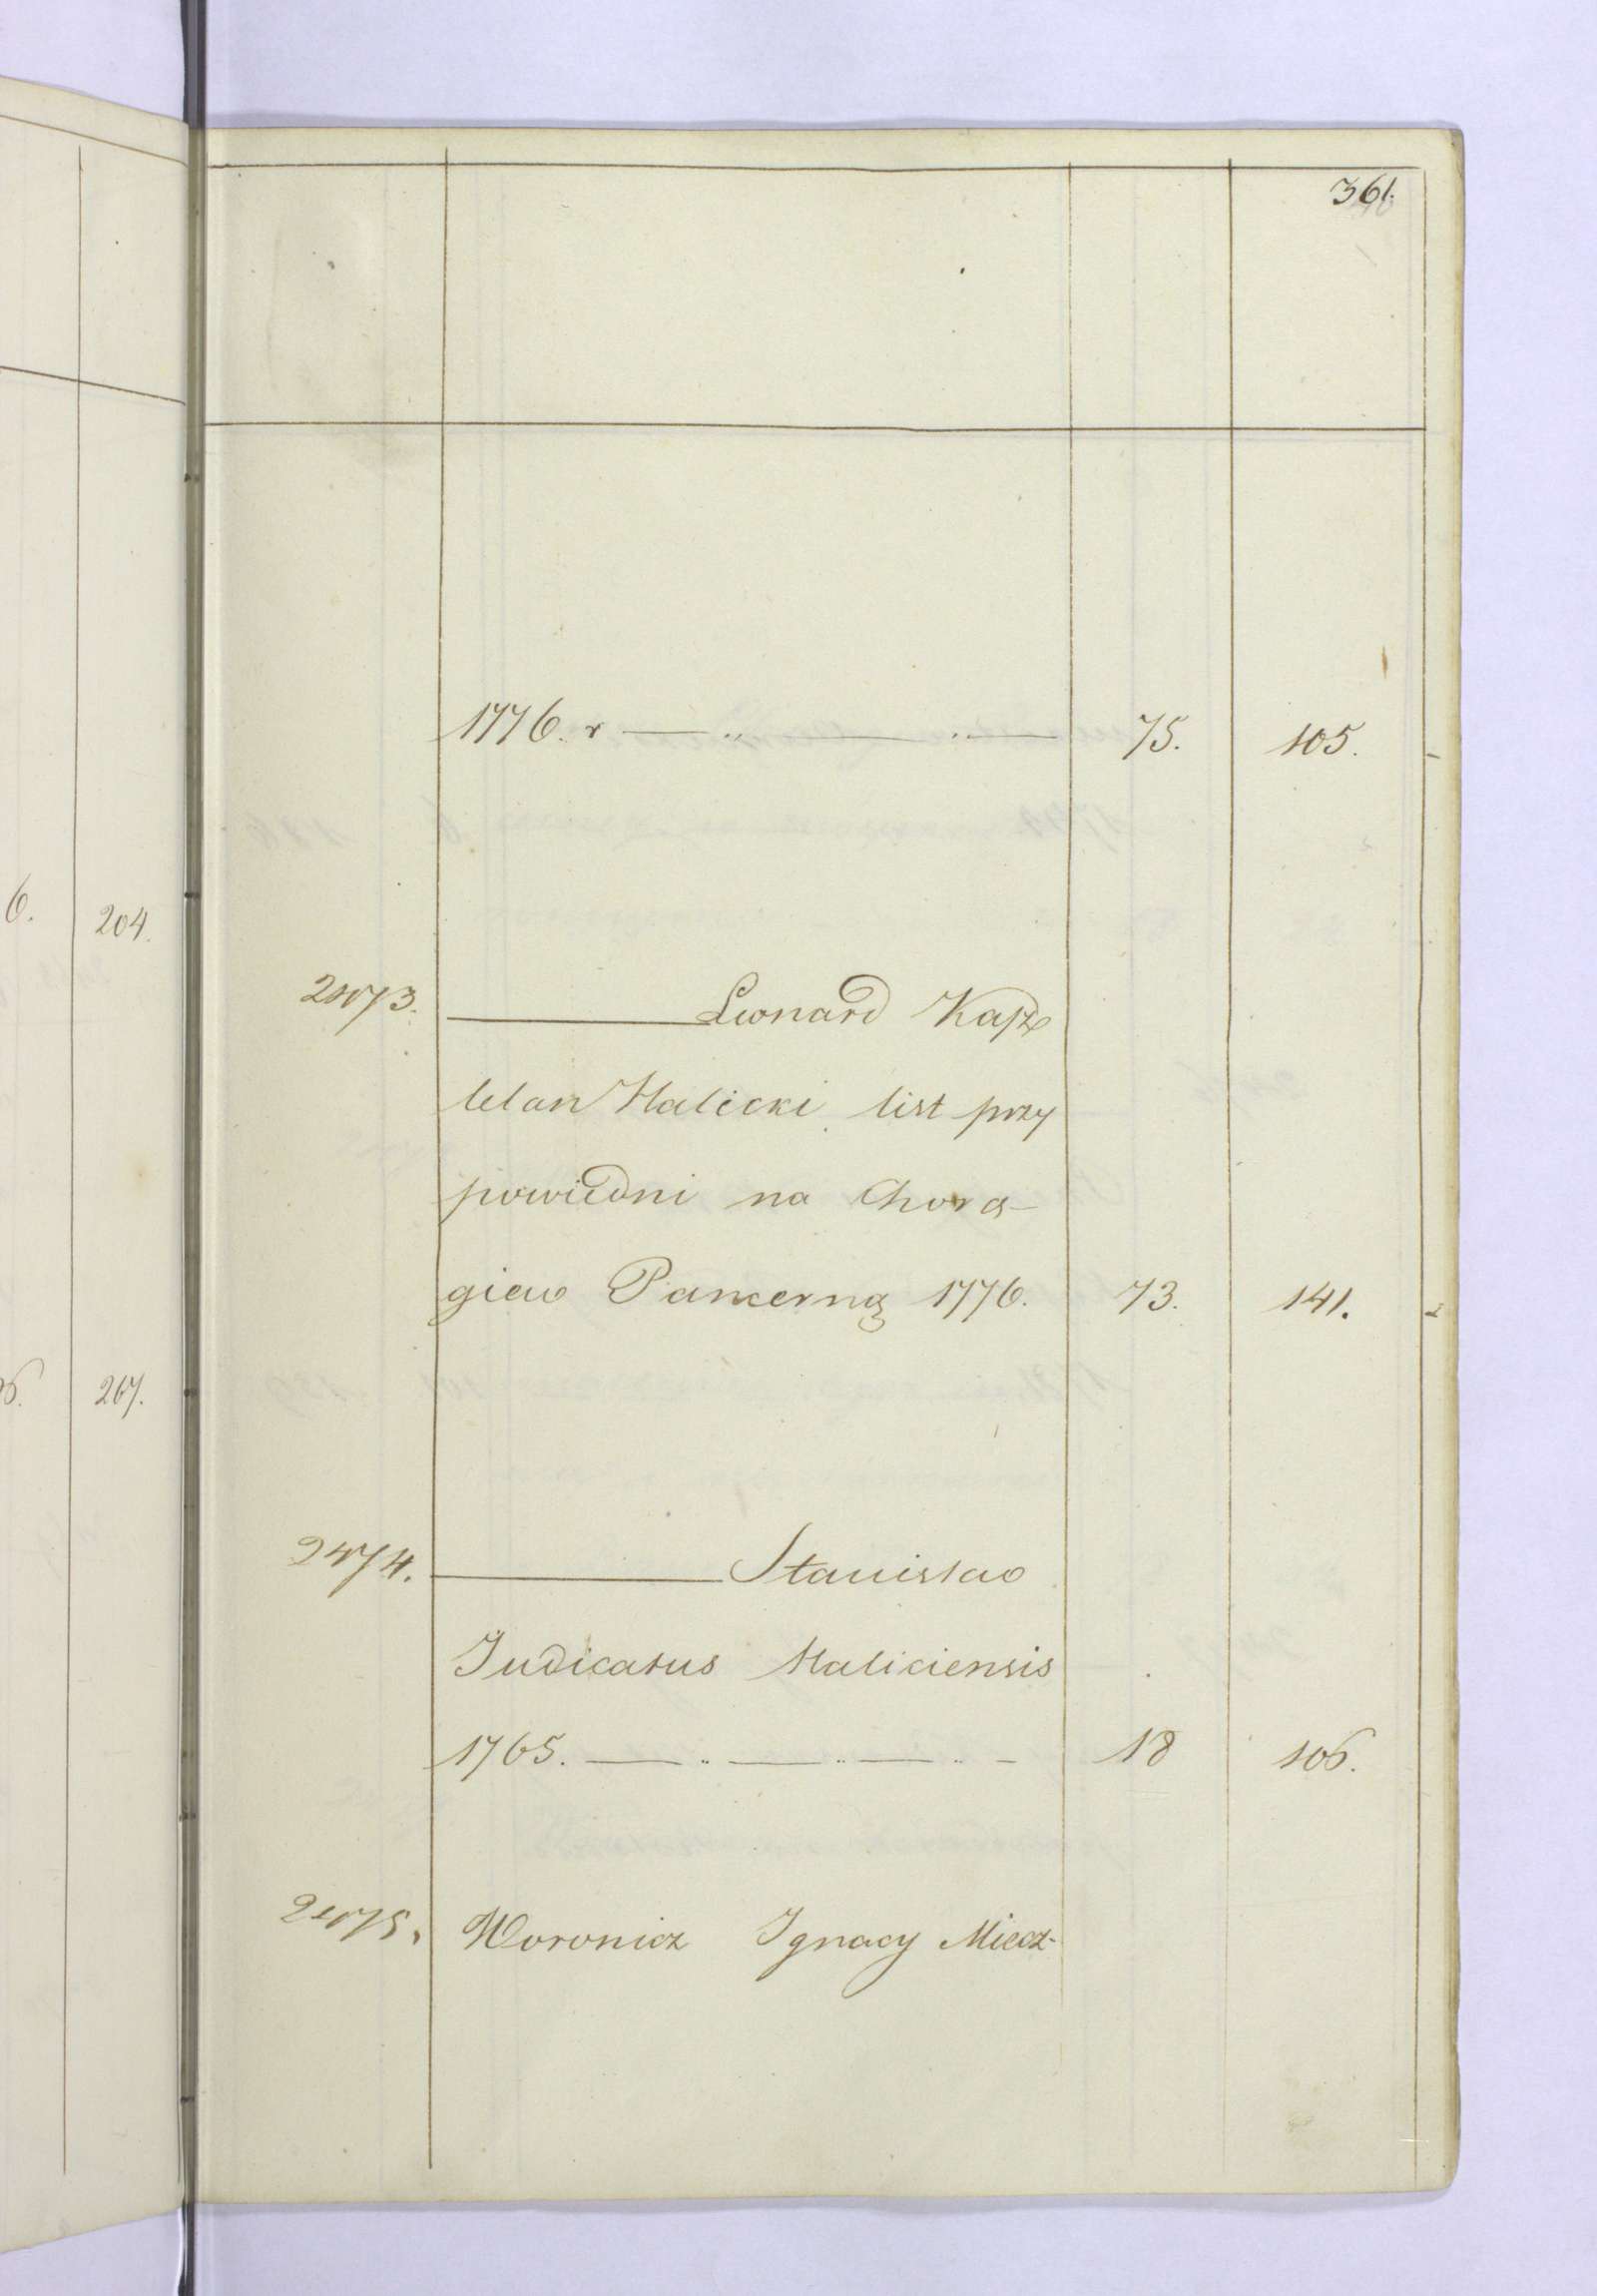 361.
1776. r — „ — „ — 75. 105.
6. 204.
2473. — Leonard Kaszte
lelan Halicki list przy
powiedni na Chorą-
giew Pancerną 1776. 73. 141.
267.
2474. — Stanisław
Judicatus Haliciensis
1765. — „ — „ — „ — 18 106.
2475. Woronicz Ignacy Miecz-